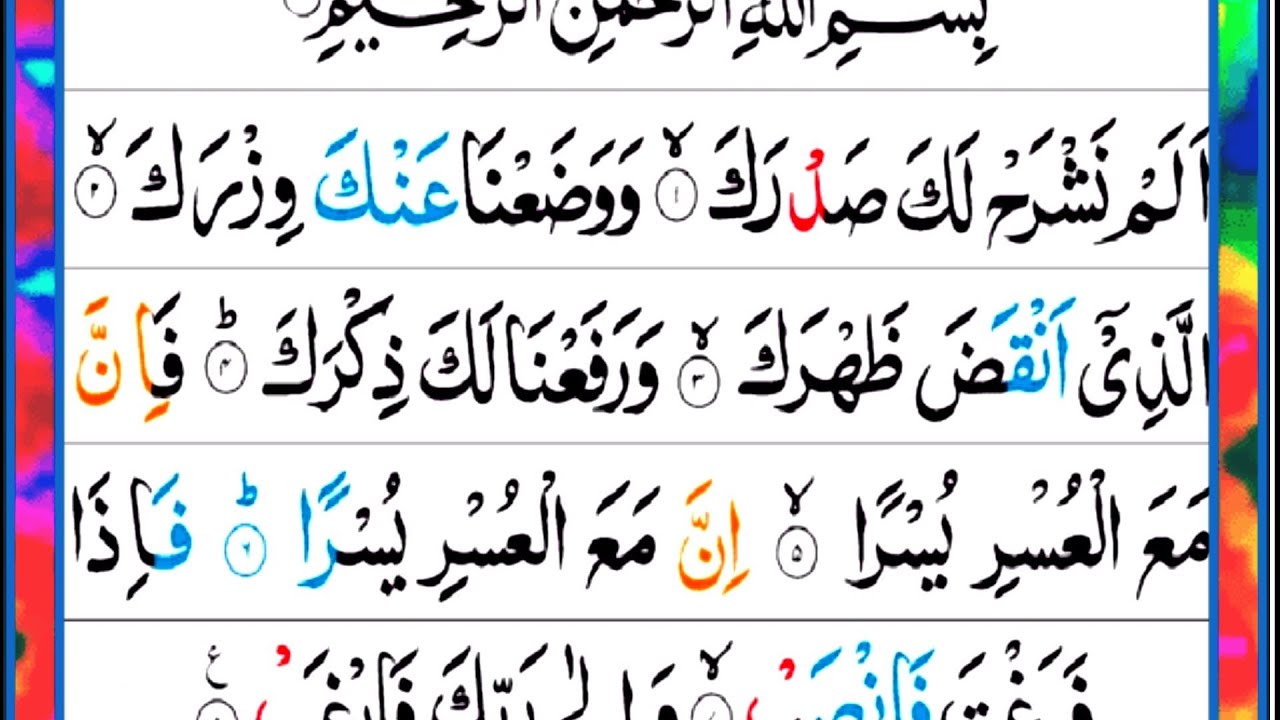 بِسْمِ اللّٰهِ الرَّحْمٰنِ الرَّحِیْمِ
اَلَمْ نَشْرَحْ لَكَ صَدْرَكَ ۙ۝۱ وَوَضَعْنَا عَنْكَ وِزْرَكَ ۙ۝۲
الَّذِیْۤ اَنْقَضَ ظَهْرَكَ ۙ۝۳ وَرَفَعْنَا لَكَ ذِكْرَكَ ؕ۝۴ فَاِنَّ
مَعَ الْعُسْرِ یُسْرًا ۙ۝۵ اِنَّ مَعَ الْعُسْرِ یُسْرًا ؕ۝۶ فَاِذَا
فَرَغْتَ فَانْصَبْ ۙ۝۷ وَاِلٰی رَبِّكَ فَارْغَبْ ۝۸ ع